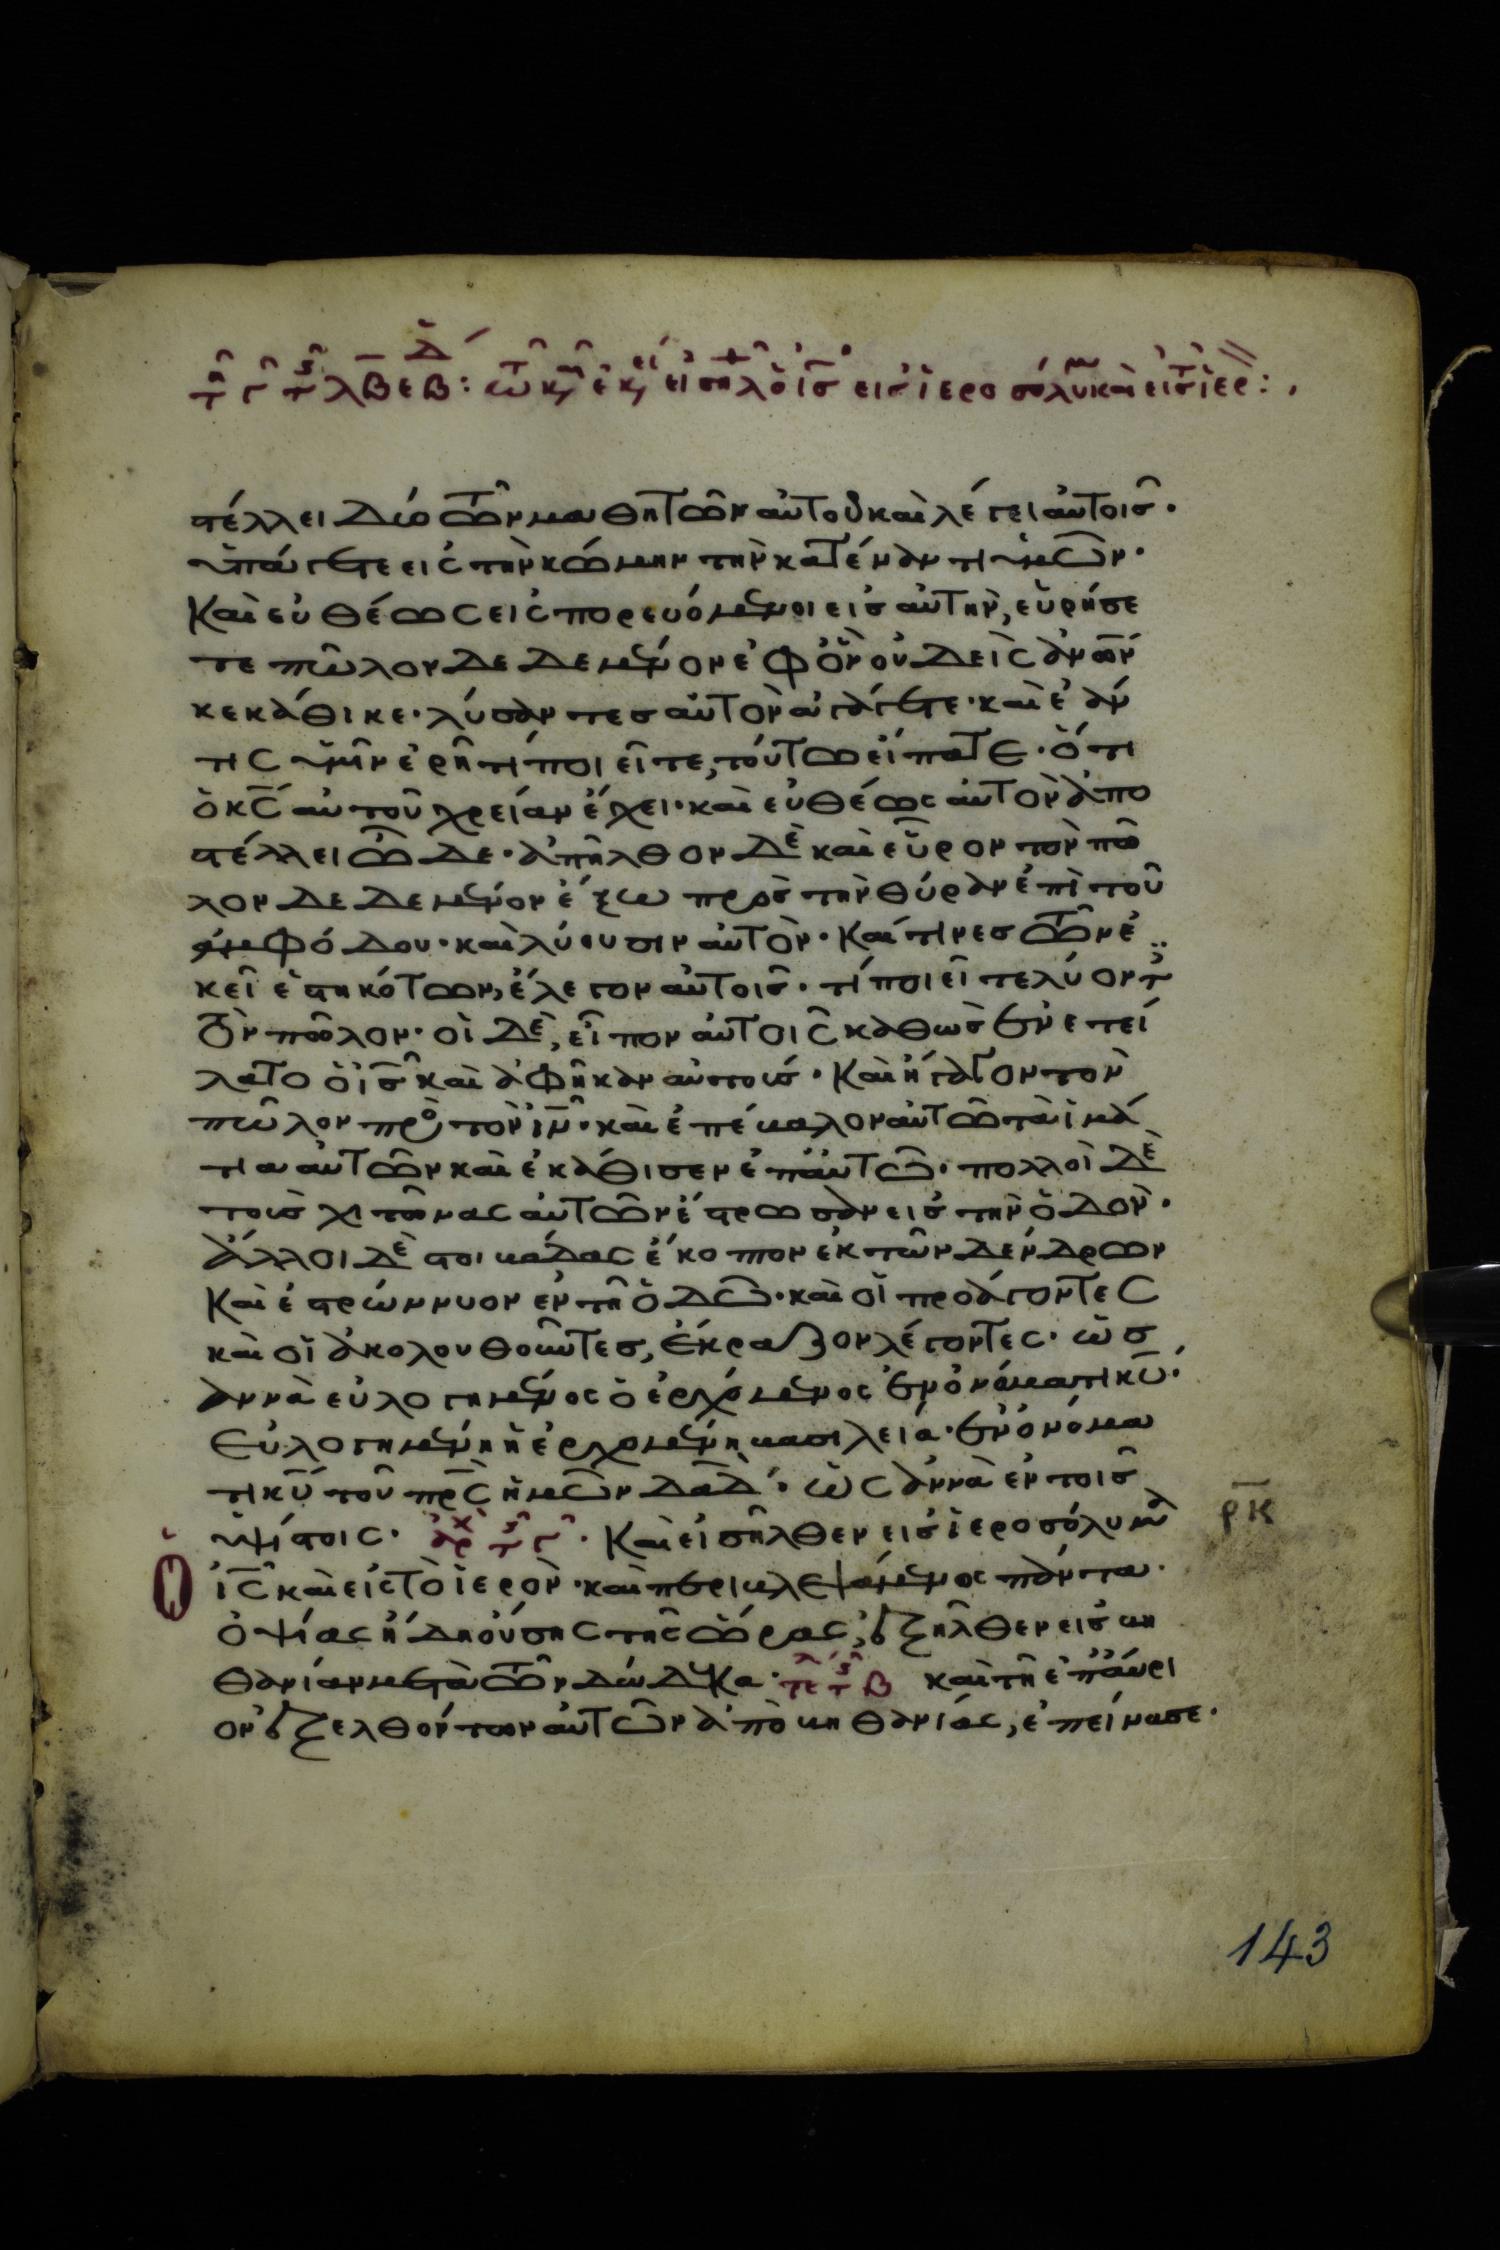 στέλλει δύο τῶν μαθητῶν αὐτοῦ καὶ λέγει αὐτοῖς·
ὑπάγετε εἰς τὴν κώμην τὴν κατέναντι ὑμῶν·
Καὶ εὐθέως εἰσπορευόμενοι εἰς αὐτὴν, εὑρήσε
τε πῶλον δεδεμένον ἐφ ὃν οὐδεὶς ἀνων
κεκάθικε· λύσαντες αὐτὸν ἀγάγετε· καὶ ἐάν
τις ὑμῖν ἐρῆ τί ποιεῖτε, τούτω εἴπατε· ὅτι
ὁ κς αὐτοῦ χρείαν ἔχει· καὶ εὐθέως αὐτὸν ἀπο
στέλλει ὧδε· ἀπῆλθον δὲ καὶ εὗρον τὸν πῶ
λον δεδεμένον ἔξω πρὸς τὴν θύραν ἐπὶ τοῦ
ἀμφόδου· καὶ λύουσιν αὐτὸν· Καί τινες τῶν ἐ
κεῖ ἑστηκότων, ἔλεγον αὐτοῖς· τί ποιεῖτε λύοντ
τὸν πῶλον· οἱ δὲ, εἶπον αὐτοῖς καθὼς ἐνετεί
λατο ὁ ις καὶ ἀφῆκαν αὐτούς· Καὶ ἤγαγον τὸν
πῶλον πρὸ τὸν ιν· καὶ ἐπέβαλον αὐτῶ τὰ ἱμά
τια αὐτῶν καὶ ἐκάθισεν ἐπ αὐτῶ· πολλοὶ δὲ
τοὺς χιτῶνας αὐτῶν ἔστρωσαν εἰς τὴν ὁδὸν·
ἄλλοι δὲ στοιβάδας ἔκοπτον ἐκ τῶν δένδρων
Καὶ ἐστρώννυον ἐν τῆ ὁδῶ· καὶ οἱ προάγοντες
καὶ οἱ ἀκολουθοῦντες, ἔκραζον λέγοντες· ὡσ
αννὰ εὐλογημένος ὁ ἐρχόμενος ἐν ὀνόματι κυ·
Εὐλογημένη ἡ ἐρχομένη βασιλεία· ἐν ὀνόμα
τι κυ τοῦ πρς ἡμῶν δαδ· ὡς ἀννὰ ἐν τοῖς
ὑψίστοις· Καὶ εἰσῆλθεν εἰς ἱεροσόλυμ
ρκ
ις καὶ εἰς τὸ ἱερὸν· καὶ περιβλεψάμενος πάντα·
ὀψίας ἤδη οὔσης τῆς ὥρας, ἐξῆλθεν εἰς βη
θανίαν μετὰ τῶν δώδεκα· καὶ τῆ ἐπαύρι
ον ἐξελθόντων αὐτῶν ἀπὸ βηθανίας, ἐπείνασε·
143